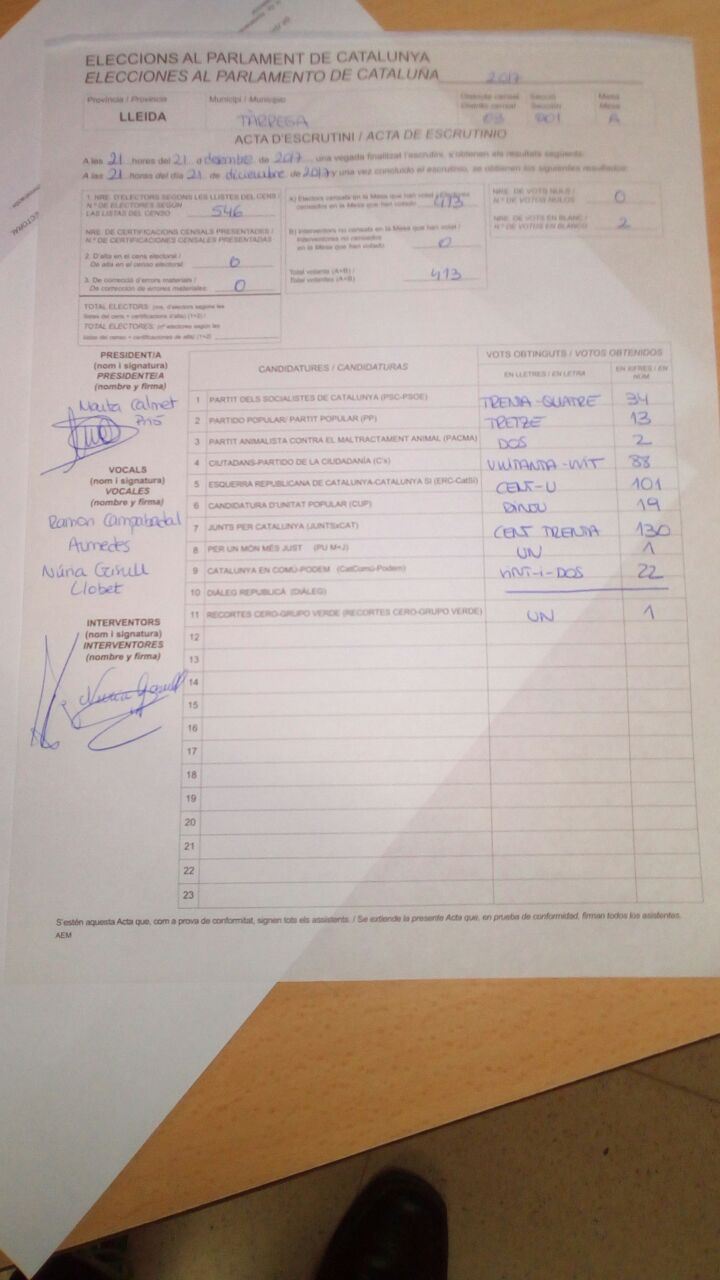 ELECCIONS AL PARLAMENT DE CATALUNYA
ELECCIONES AL PARLAMENTO DE CATALUÑA 2017
Província / Provincia
LLEIDA
Municipi / Municipio
TÀRREGA
Districte censal
Distrito censal
03
Secció
Sección
001
Mesa
Mesa
A
ACTA D'ESCRUTINI / ACTA DE ESCRUTINIO
A les 21 hores del 21 d desembre de 2017, una vegada finalitzat l'escrutini, s'obtenen els resultats següents:
A las 21 horas del día 21 de diciembre de 2017 y una vez concluido el escrutinio, se obtienen los siguientes resultados:
1. NRE. D'ELECTORS SEGONS LES LLISTES DEL CENS /
N.º DE ELECTORES SEGÚN
LAS LISTAS DEL CENSO 546
NRE. DE CERTIFICACIONS CENSALS PRESENTADES /
N.º DE CERTIFICACIONES CENSALES PRESENTADAS
2. D'alta en el cens electoral /
De alta en el censo electoral: 0
3. De correcció d'errors materials /
De corrección de errores materiales: 0
TOTAL ELECTORS: (nre. d'electors segons les
llistes del cens + certificacions d'alta) (1+2) /
TOTAL ELECTORES: (nº electores según las
listas del censo + certificaciones de alta) (1+2)
A) Electors censats en la Mesa que han votat / Electores
censados en la Mesa que han votado 413
B) Interventors no censats en la Mesa que han votat /
Interventores no censados
en la Mesa que han votado 0
Total votants (A+B) /
Total votantes (A+B) 413
NRE. DE VOTS NULS /
N.º DE VOTOS NULOS 0
NRE. DE VOTS EN BLANC /
N.º DE VOTOS EN BLANCO 2
PRESIDENT/A
(nom i signatura)
PRESIDENTE/A
(nombre y firma)
Marta Calmet
Piró
VOCALS
(nom i signatura)
VOCALES
(nombre y firma)
Ramon Campabadal
Aumedes
Núria Gisell
Llobet
INTERVENTORS
(nom i signatura)
INTERVENTORES
(nombre y firma)
CANDIDATURES / CANDIDATURAS
VOTS OBTINGUTS / VOTOS OBTENIDOS
EN LLETRES / EN LETRA
EN XIFRES / EN NÚM
1 PARTIT DELS SOCIALISTES DE CATALUNYA (PSC-PSOE) TRENTA-QUATRE 34
2 PARTIDO POPULAR/ PARTIT POPULAR (PP) TRETZE 13
3 PARTIT ANIMALISTA CONTRA EL MALTRACTAMENT ANIMAL (PACMA) DOS 2
4 CIUTADANS-PARTIDO DE LA CIUDADANÍA (C's) VUITANTA-VUIT 88
5 ESQUERRA REPUBLICANA DE CATALUNYA-CATALUNYA SÍ (ERC-CatSí) CENT-U 101
6 CANDIDATURA D'UNITAT POPULAR (CUP) DINOU 19
7 JUNTS PER CATALUNYA (JUNTSxCAT) CENT TRENTA 130
8 PER UN MÓN MÉS JUST (PU M+J) UN 1
9 CATALUNYA EN COMÚ-PODEM (CatComú-Podem) VINT-I-DOS 22
10 DIÀLEG REPUBLICÀ (DIÀLEG)
11 RECORTES CERO-GRUPO VERDE (RECORTES CERO-GRUPO VERDE) UN 1
12
13
14
15
16
17
18
19
20
21
22
23
S'estén aquesta Acta que, com a prova de conformitat, signen tots els assistents. / Se extiende la presente Acta que, en prueba de conformidad, firman todos los asistentes.
AEM